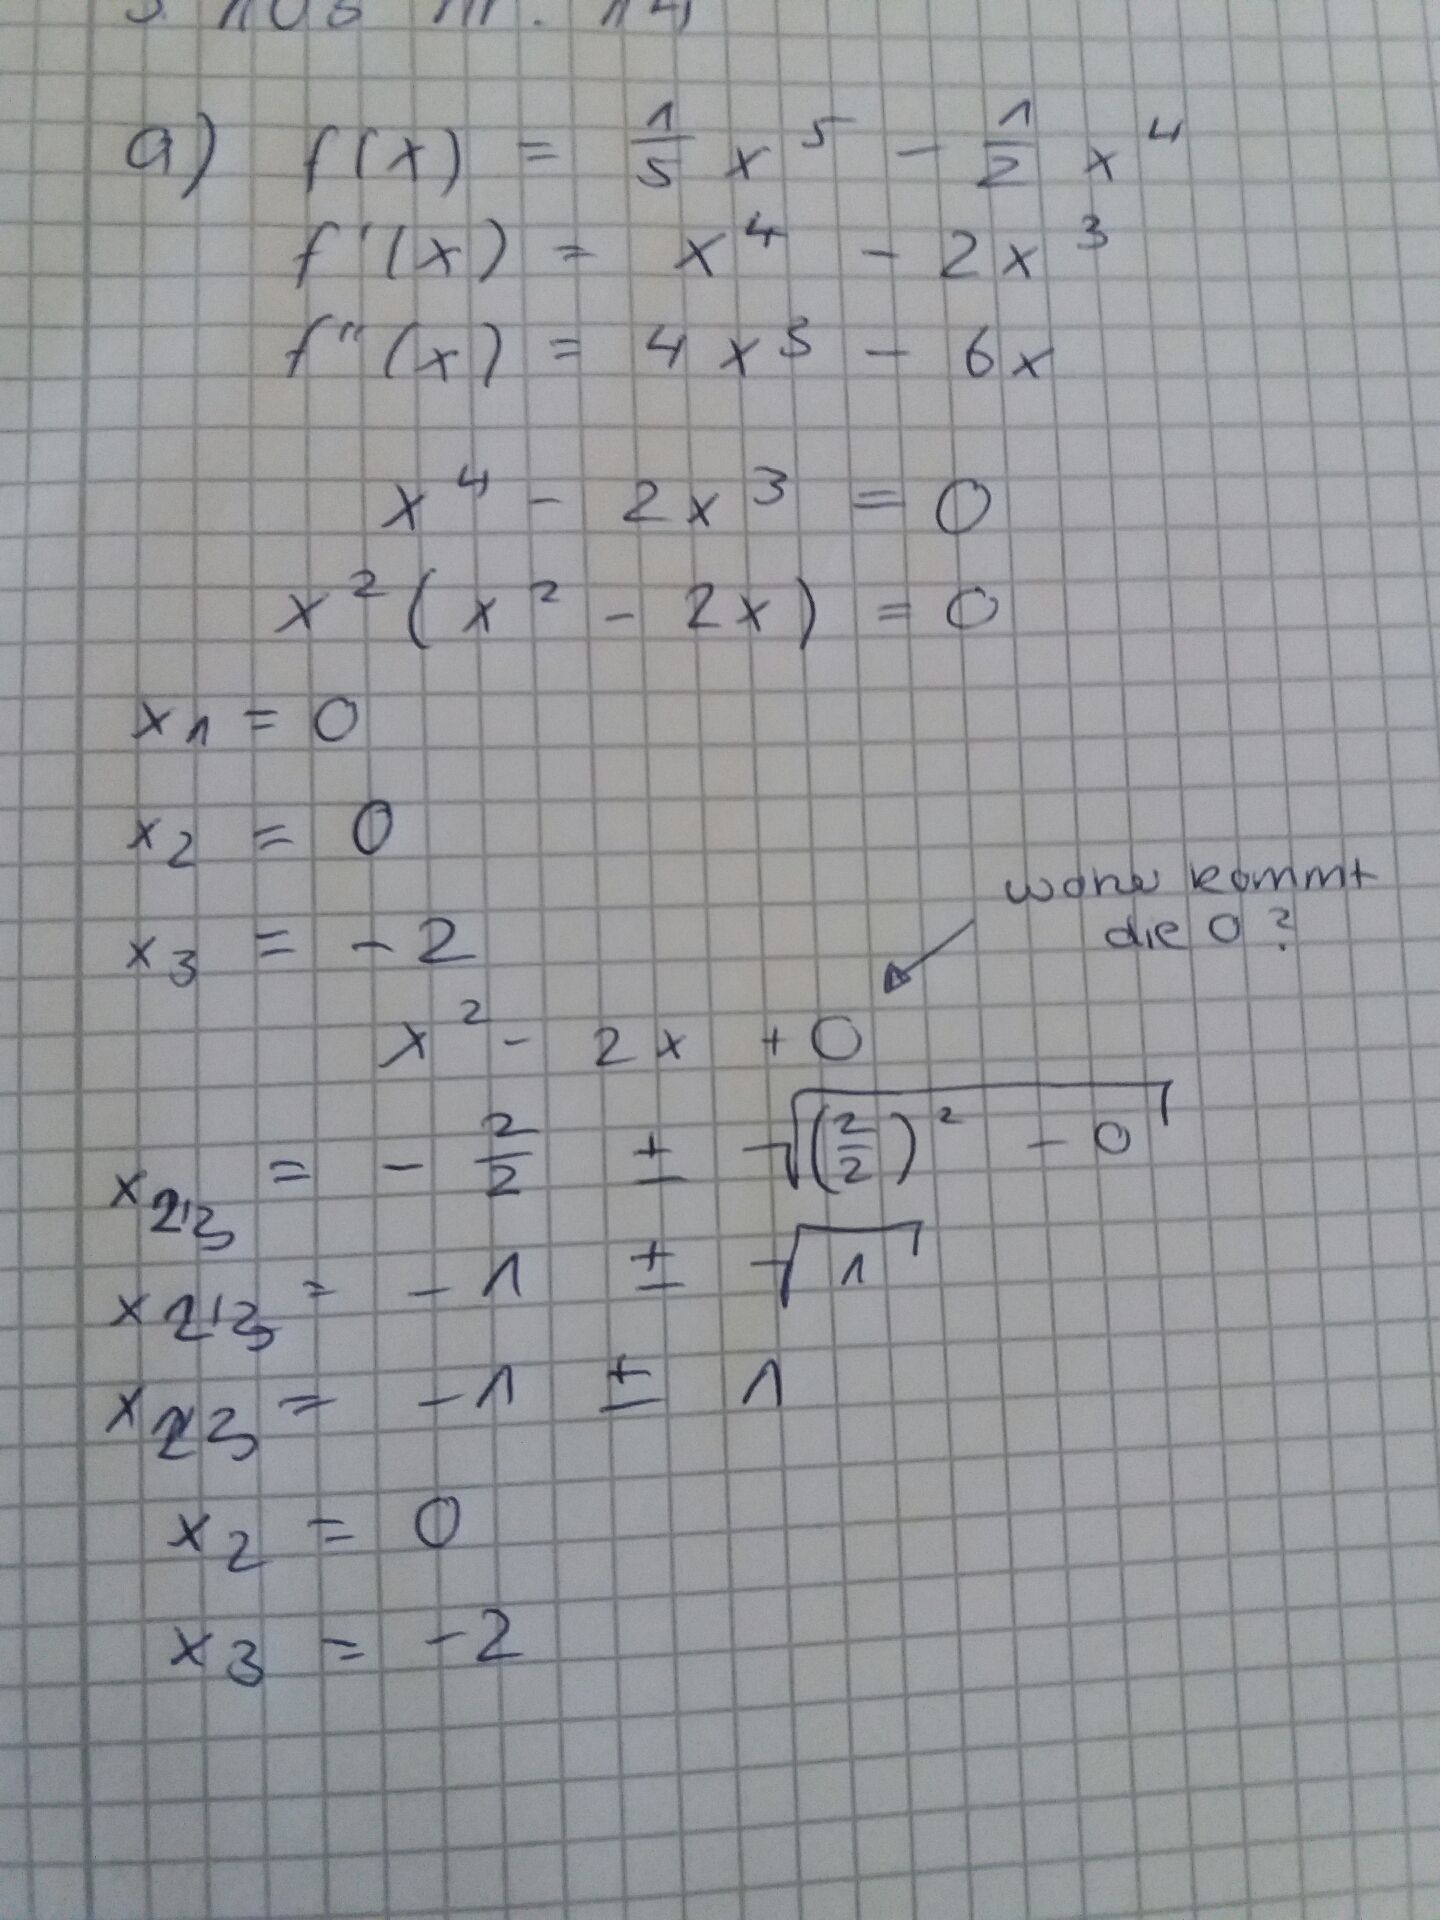 a) f(x) = 1/5 x^5 - 1/2 x^4
f'(x) = x^4 - 2x^3
f''(x) = 4x^3 - 6x
x^4 - 2x^3 = 0
x^2(x^2 - 2x) = 0
x1 = 0
x2 = 0
x3 = -2
kommt
die 0?
x^2 - 2x + 0
x2,3 = - 2/2 ± √((2/2)^2 - 0)
x2,3 = -1 ± √1
x2,3 = -1 ± 1
x2 = 0
x3 = -2